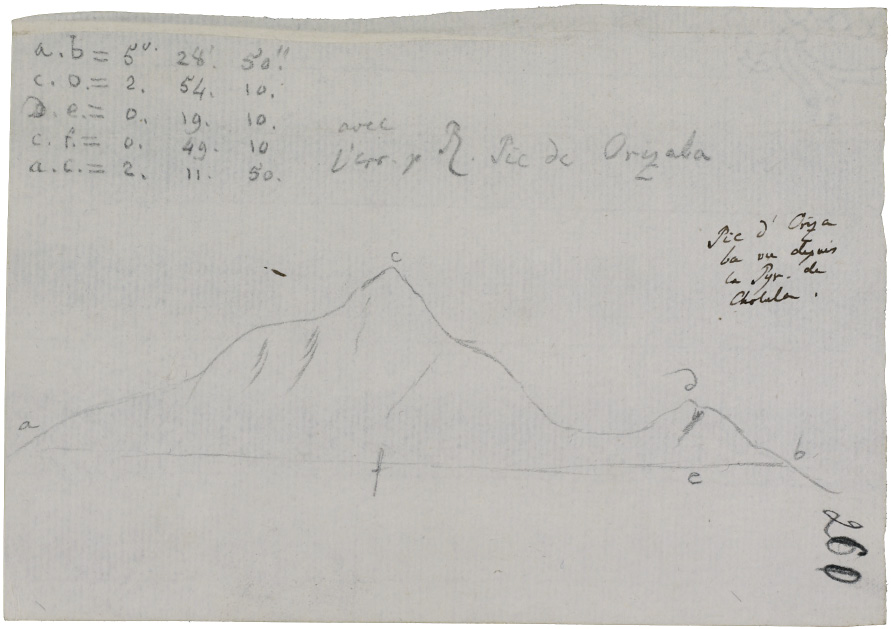 a.b = 5°. 28'. 50''.
c.D = 2. 54. 10.
D.e. = 0. 19. 10.
c.f. = 0. 49. 10
a.c. = 2. 11. 50.
avec
l'err. p R. Pic de Oryzaba
Pic d' Oriza
ba vu depuis
la Pyr. de
Cholula.
c
D
a
b
f
e
260